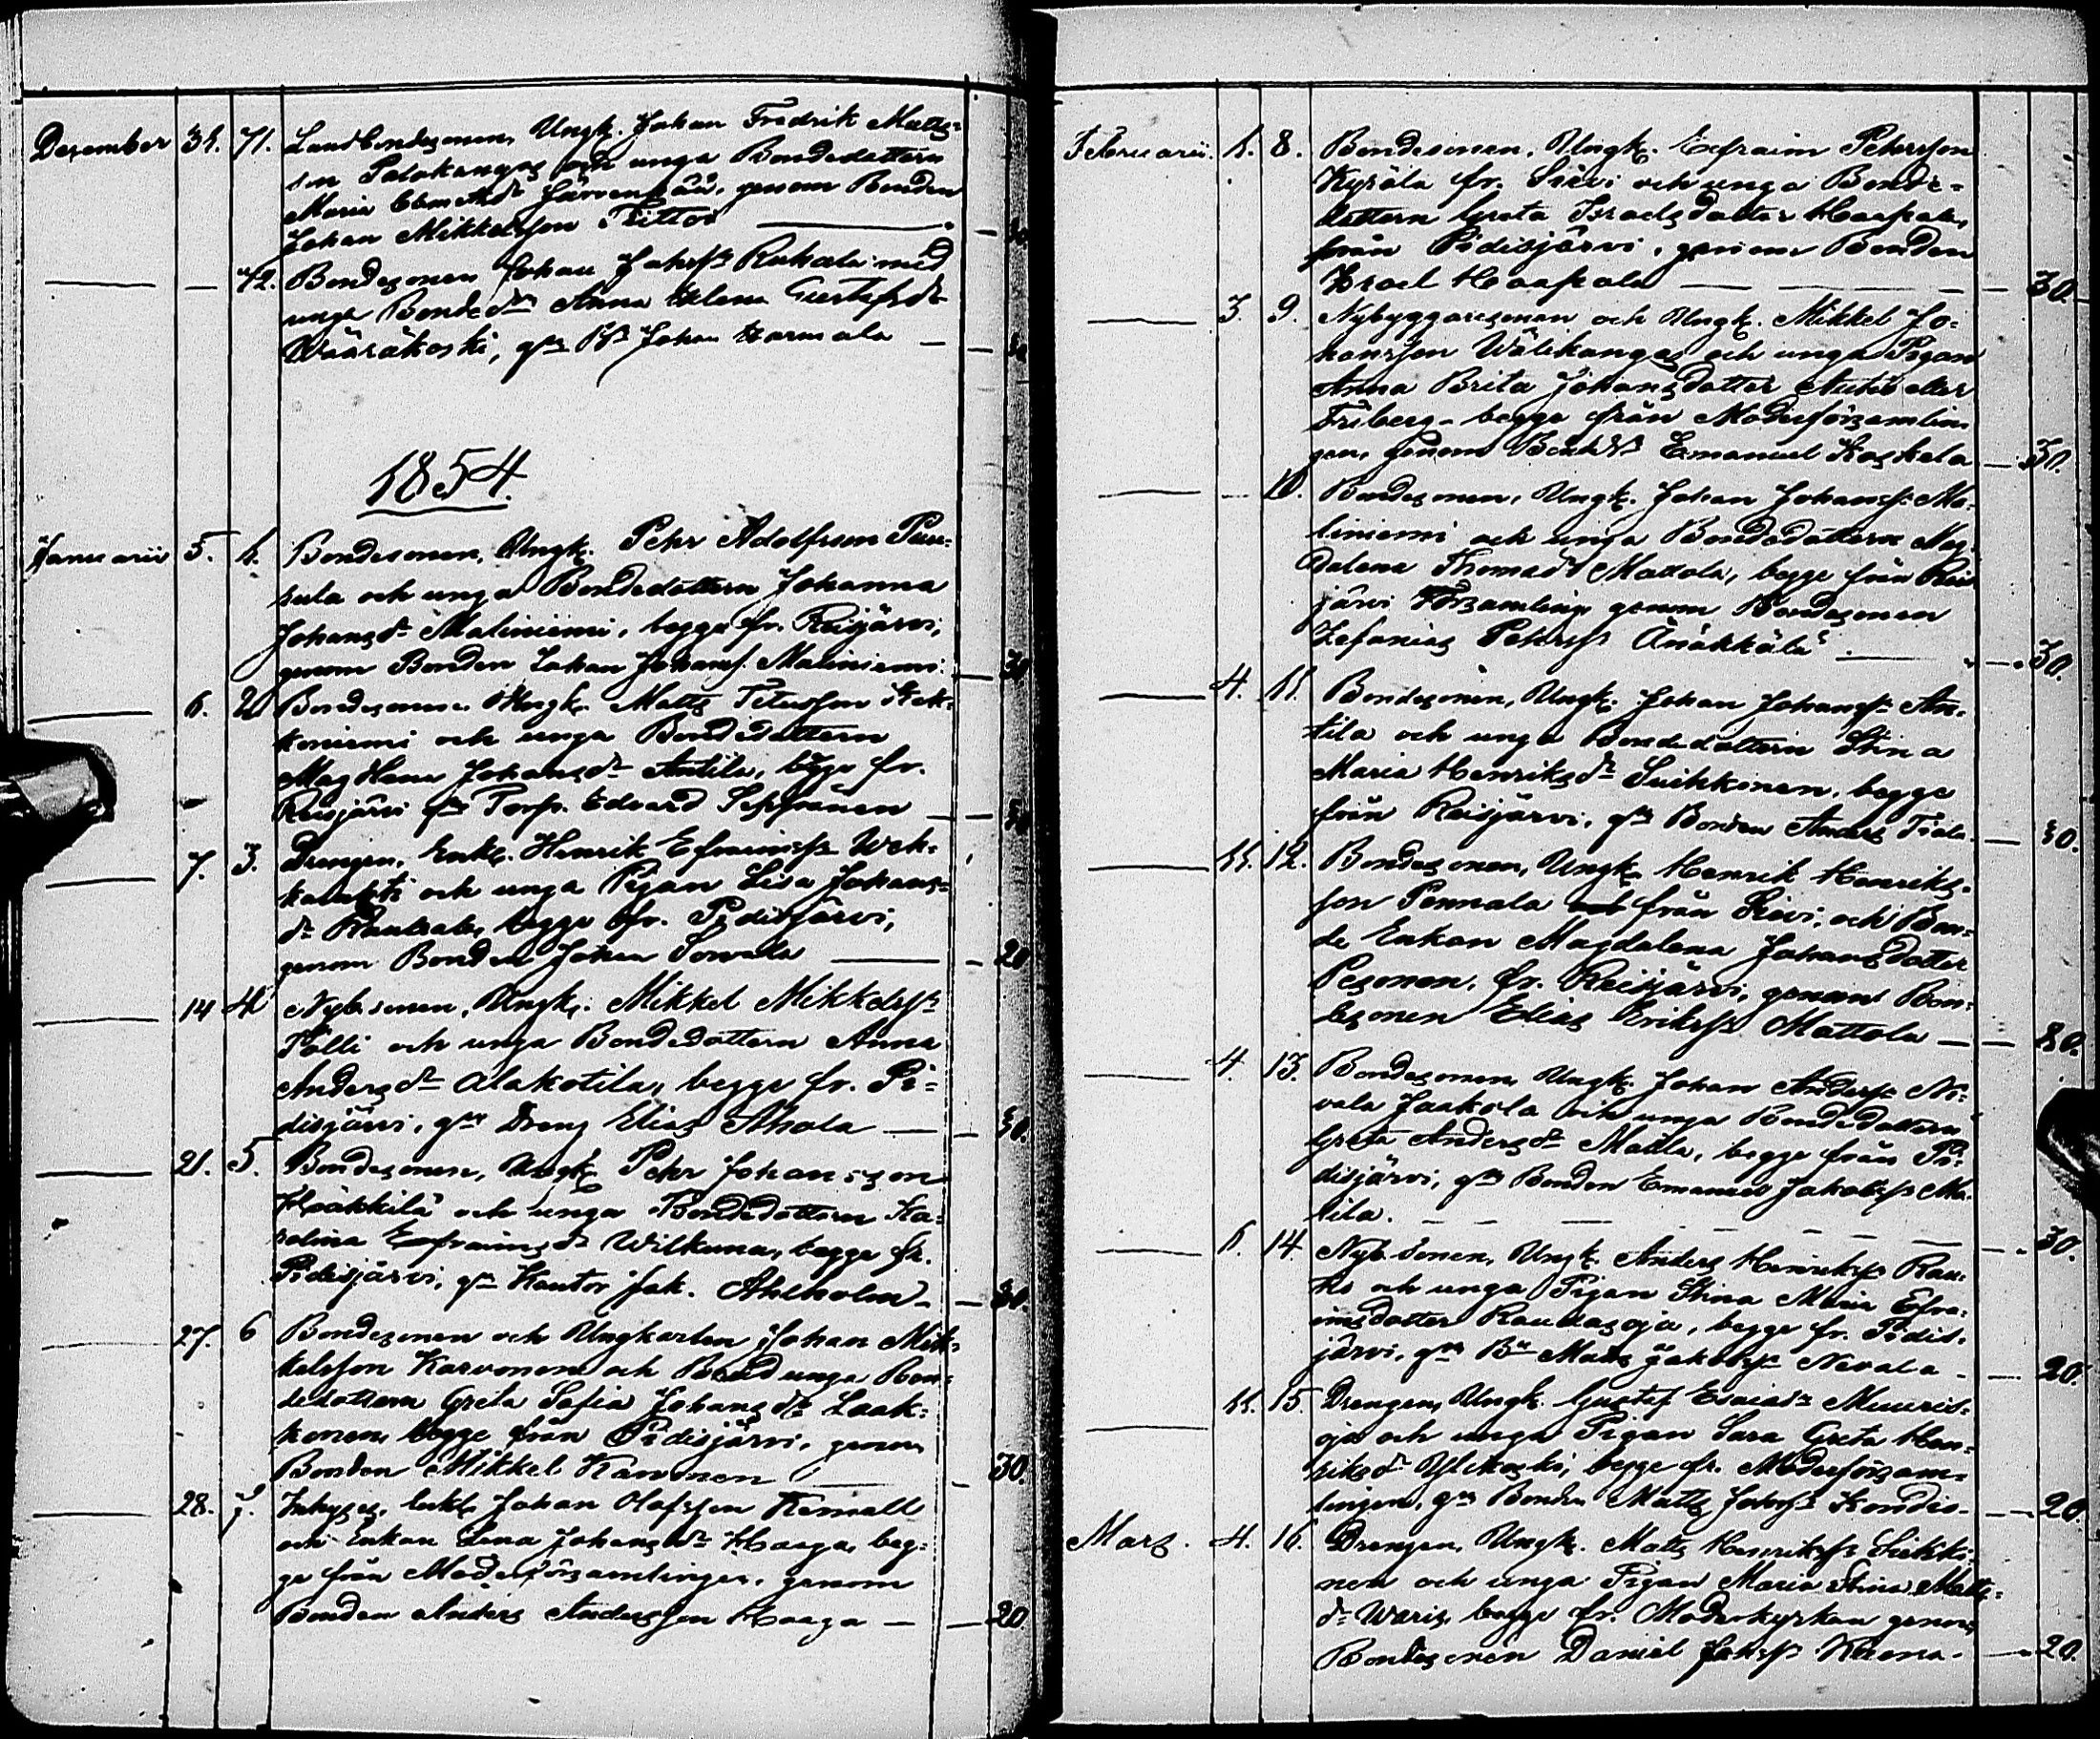 Desember 31. 71. Landbondesonen, Ungk. Johan Fredrik Matts-
son Palokangas och unga Bondedottern
Maria Järvenpää, genom Bonden
Johan Mikkelsson Tiitto — 30.
— — 72. Bondesonen Johan Johsß Ruhala med
unga Bonde dn Anna Helena Gustafsdr
Wääräkoski, gm Johan Harmala — — 30
1854.
Januarii 5. 1. Bondesonen, Ungk. Pehr Adolfsson Puu-
sula och unga Bondedottern Johanna
Johansdr Maliniemi, begge fr. Reisjärvi,
genom Bonden Johan Johansß. Maliniemi. — 30
— 6. 2 Bondesonen Ungk. Matts Titusson Kek-
koniemi och unga Bondedottern
Magdlena Johansdr Antila, begge fr.
Reisjärvi gm Torp. Edvard Seppänen — — 30
— 7. 3. Drengen, Enkl. Henrik Efraimsß Weh-
kalahti och unga Pigan Lisa Johans-
dr Rautsala, begge fr. Pidisjärvi,
genom Bonden Johan Sorvala — — 20
— 14 4 Nyb.sonen, Ungk. Mikkel Mikkelsß
Pölli och unga Bondedottern Anna
Andersdr Alakotila, begge fr. Pi-
disjärvi, gm Dreng Elias Ahola — — 30.
— 21. 5. Bondesonen, Ungk. Pehr Johansson
Häkkilä och unga Bondedottern Ka-
rolina Efraimsdr Wilkuna, begge fr.
Pidisjärvi, gm Kantor Jak. Ahlholm — — 30.
— 27. 6 Bondesonen och Ungkarlen Johan Mik-
kelsson Karvonen och unga Bon-
dedottern Greta Sofia Johansdr Laak-
konen, begge från Pidisjärvi, genom
Bonden Mikkel Karvonen — — 30.
— 28. 7. Inhyses, Enkl. Johan Olofsson Kemall
och Enkan Lena Johansdr Haaga, beg-
ge från Moderförsamlingen, genom
Bonden Anders Andersson Haaga — — 20.
Februarii. 1. 8. Bondesonen, Ungk. Exfraim Pehrsson
Kyrölä fr. Sievi och unga Bonde-
dottern Greta Israelsdotter Haapala,
från Pidisjärvi, genom Bonden
Israel Haapala — — 30.
— 3. 9. Nybyggaresonen och Ungk. Mikkel Jo-
hansson Wälikangas och unga Pigan
Anna Brita Johansdotter Autio eller
Friberg - begge från Moderförsamlin-
gen, genom Emanuel Koskela — 30.
— — 10. Bondesonen, Ungk. Johan Johansß. Ma-
liniemi och unga Bondedottern Mag-
dalena Thomasdr Mattola, begge från Rei-
järvi Församling genom Bondesonen
Zefanias Pehrsß Änäkkälä — — 30.
— 4. 11. Bondesonen, Ungk. Johan Johansß An-
tila och unga Bondedottern Stina
Maria Henriksdr Suikkinen, begge
från Reisjärvi, gm Bonden Anders Tiala — 30.
— 11. 12. Bondesonen, Ungk. Henrik Henriks-
son Pennala från Sievi, och Bon-
de Enkan Magdalena Johansdotter
Pesonen, fr. Reisjärvi, genom Bon-
desonen Elias Eriksß Mattola — — 30.
— 4. 13. Bondesonen Ungk. Johan Andersß Ni-
vala Jaakola och unga Bondedottern
Greta Andersdr Matila, begge från Pi-
disjärvi, gm Bonden Emanuel Jakobsß Ma-
tila. — — — 30.
— 11. 14. Nyb.sonen, Ungk. Anders Henriksß Rau-
ho och unga Pigan Stina Maria Efra-
imsdotter Raudasoja, begge fr. Pidis-
järvi, gm Bn Matts Jakobsß Nivala — — 20.
— 11. 15. Drengen, Ungk. Gustaf Esaiasn Muuris-
oja och unga Pigan Sara Greta Hen-
riksdr Ylikoski, begge fr. Moderförsam-
lingen, gm Bonden Matts Johsß Kondio — — 20.
Mars. 4. 16. Drengen, Ungk. Matts Henriksß Suikki-
nen och unga Pigan Maria Stina Matts-
dr Waris, begge fr. Moderkyrkan genom
Bondesonen Daniel Johsß Kuona — — 20.